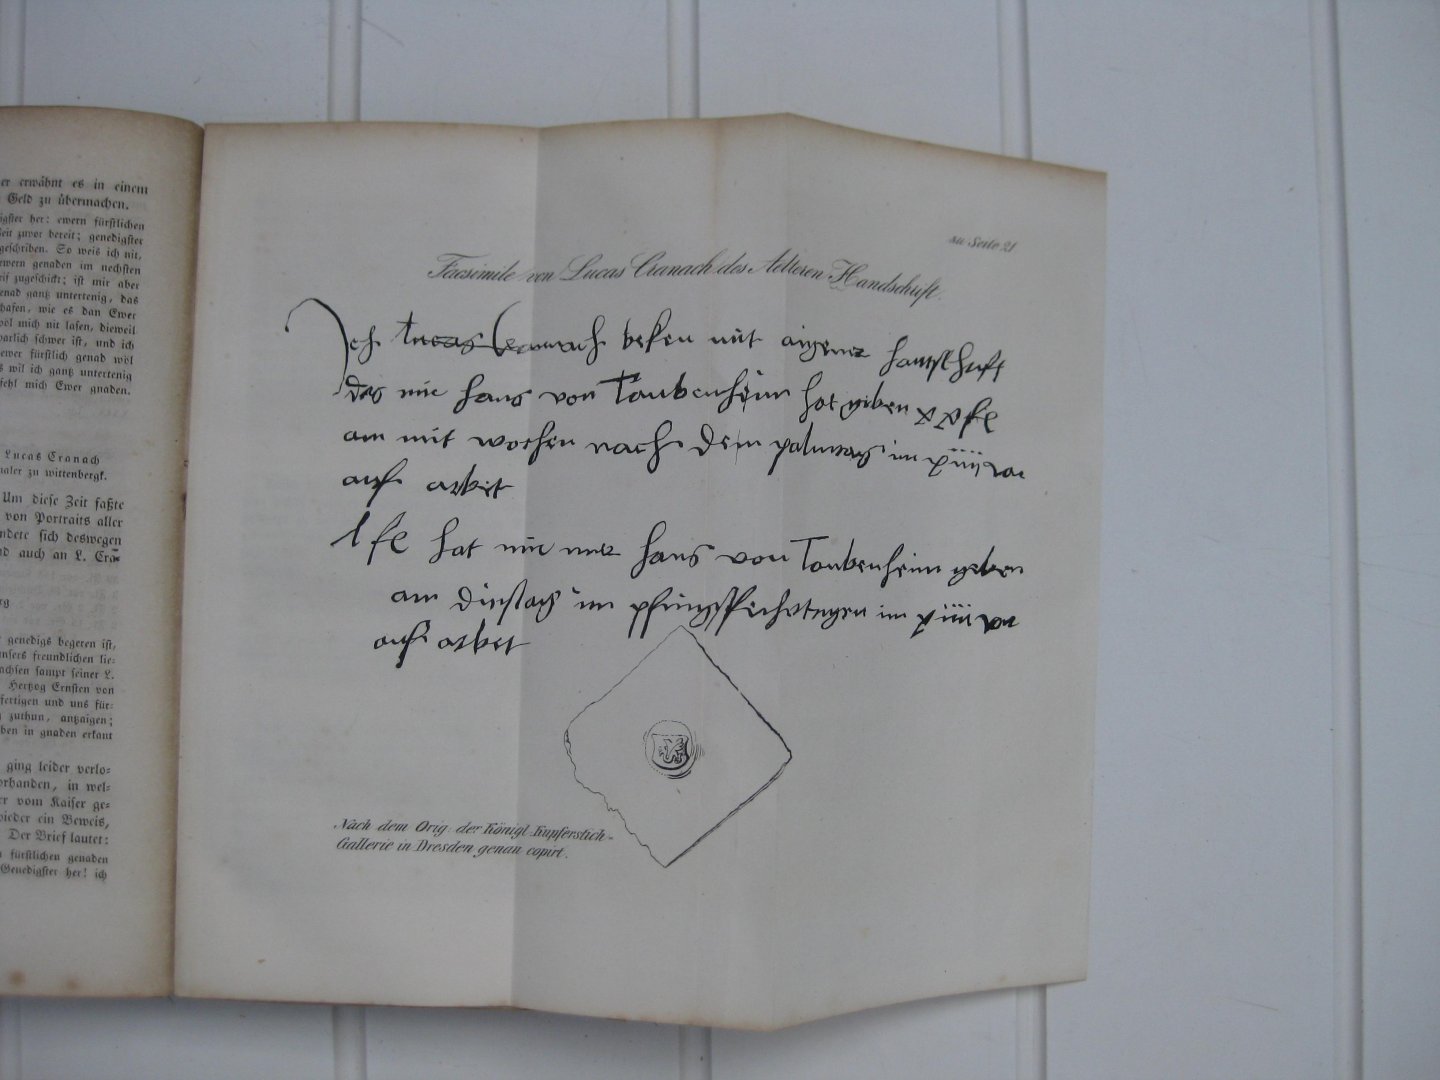 er erwähnt es in einem
Geld zu übermachen.
igster her: ewern fürstlichen
zuvor bereit; genedigster
geschriben. So weis ich nit,
ewern genaden im nechsten
zugeschickt; ist mir aber
genad gantz untertenig, das
wie es dan Ewer
mich nit lasen, dieweil
schwer ist, und ich
ewer fürstlich genad wöl
wil ich gantz untertenig
mich Ewer gnaden.
Lucas Cranach
maler zu wittenbergk.
Um diese Zeit faßte
von Portraits aller
sich deswegen
auch an L. Cra=
genedigs begeren ist,
unsers freundlichen lie=
sampt seiner L.
Hertzog Ernsten von
fertigen und uns für=
zuthun, antzaigen;
in gnaden erkant
ging leider verlo=
vorhanden, in wel=
vom Kaiser ge=
wieder ein Beweis,
Der Brief lautet:
fürstlichen genaden
Genedigster her! ich
zu Seite 21
Facsimile von Lucas Cranach des Aelteren Handschrift.
Ich Lucas Cranach beken mit aigener hantschrift
das mir hans von Taubenheim hat geben xx fl
am mit wochen nach dem palmtag im
auff arbet
1 fl hat mir mer hans von Taubenheim geben
am dinstag im pfingstfeihertagen im
auff arbet
Nach dem Orig. der Königl. Kupferstich-
Gallerie in Dresden genau copirt.